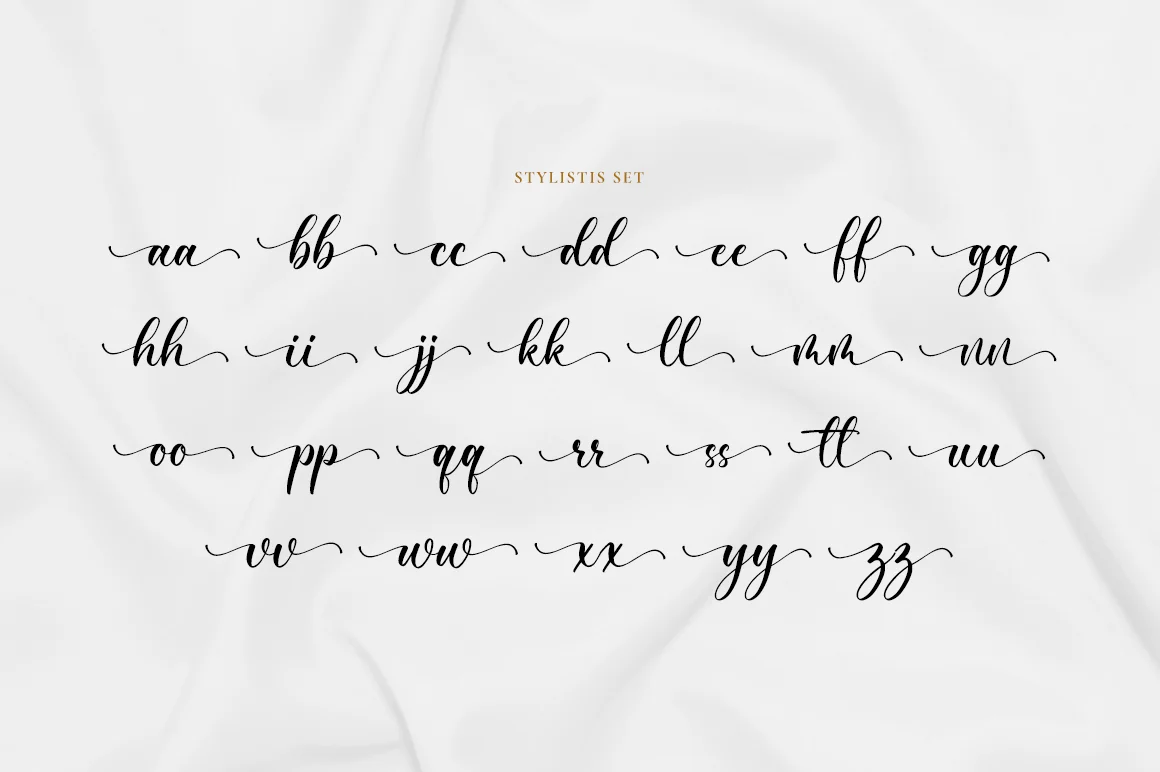 STYLISTIS SET
aa bb cc dd ee ff gg
hh ii jj kk ll mm nn
oo pp qq rr ss tt uu
vv ww xx yy zz